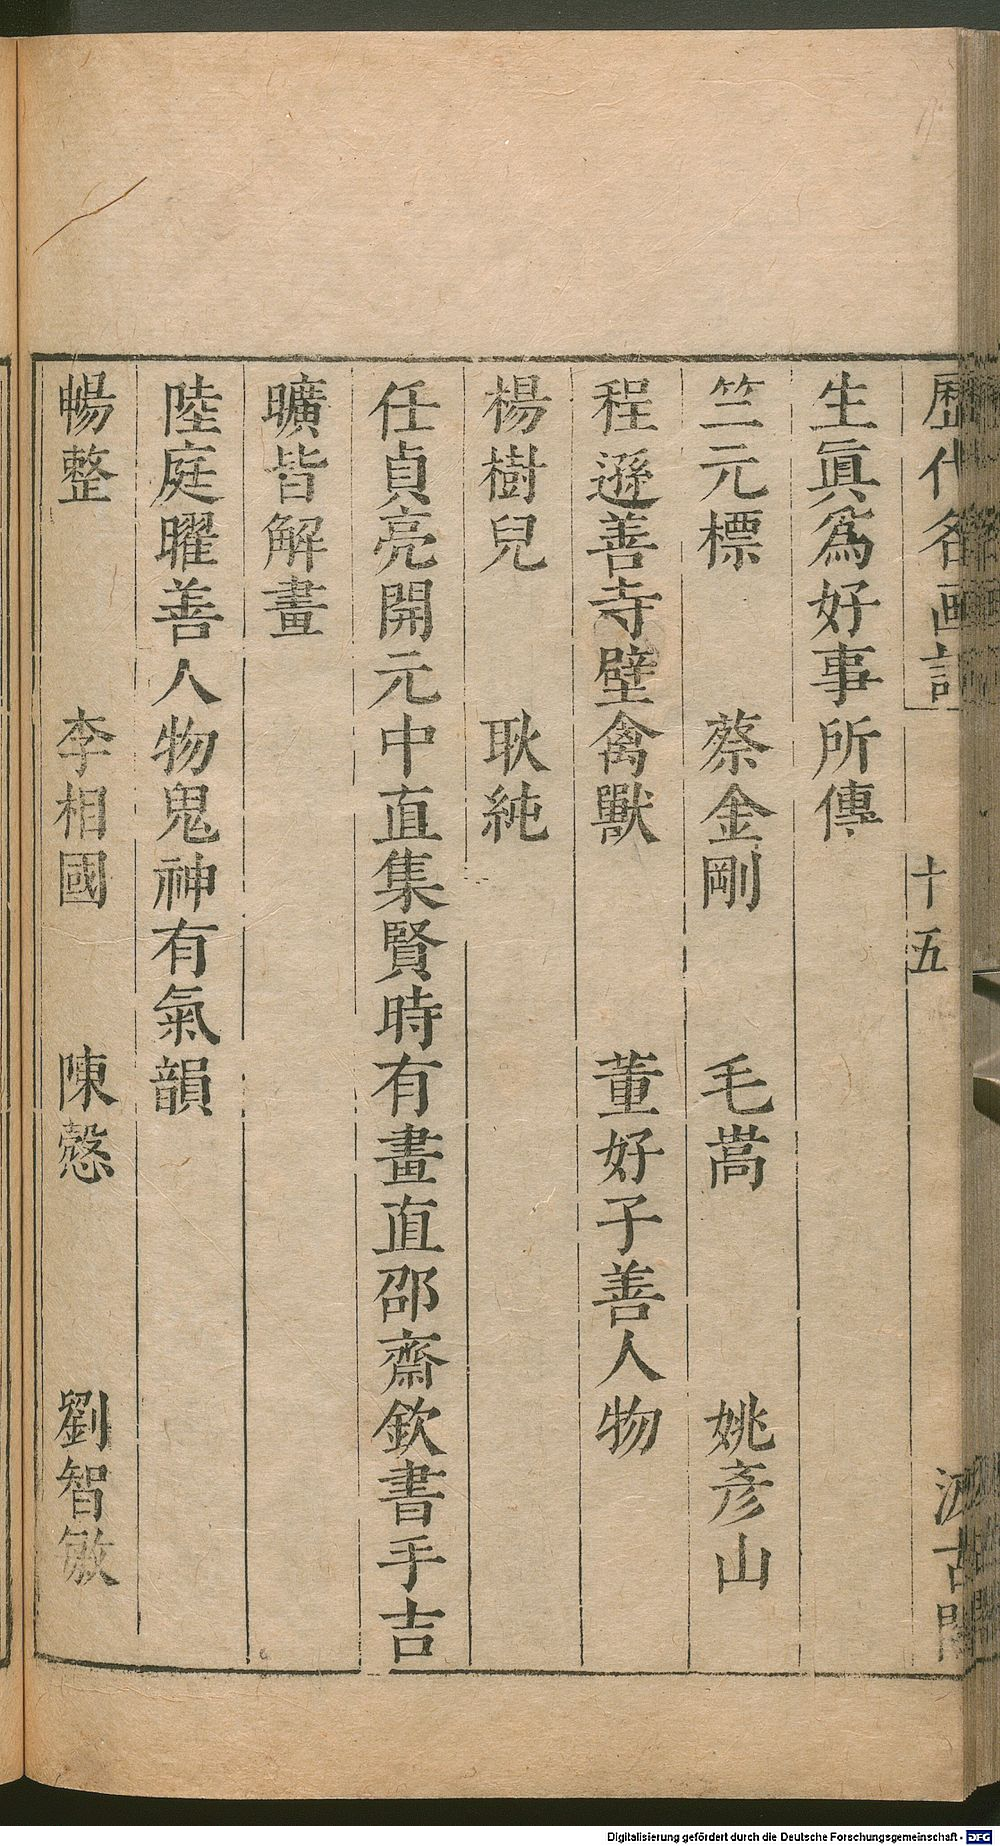 歷代名画記 十五 汲古閣
生眞爲好事所傳
竺元標 蔡金剛 毛嵩 姚彥山
程遜善寺壁禽獸 董好子善人物
楊樹兒 耿純
任貞亮開元中直集賢時有畫直邵齋欽書手吉
曠皆解畫
陸庭曜善人物鬼神有氣韻
暢整 李相國 陳慤 劉智敏
Digitalisierung gefördert durch die Deutsche Forschungsgemeinschaft - DFG